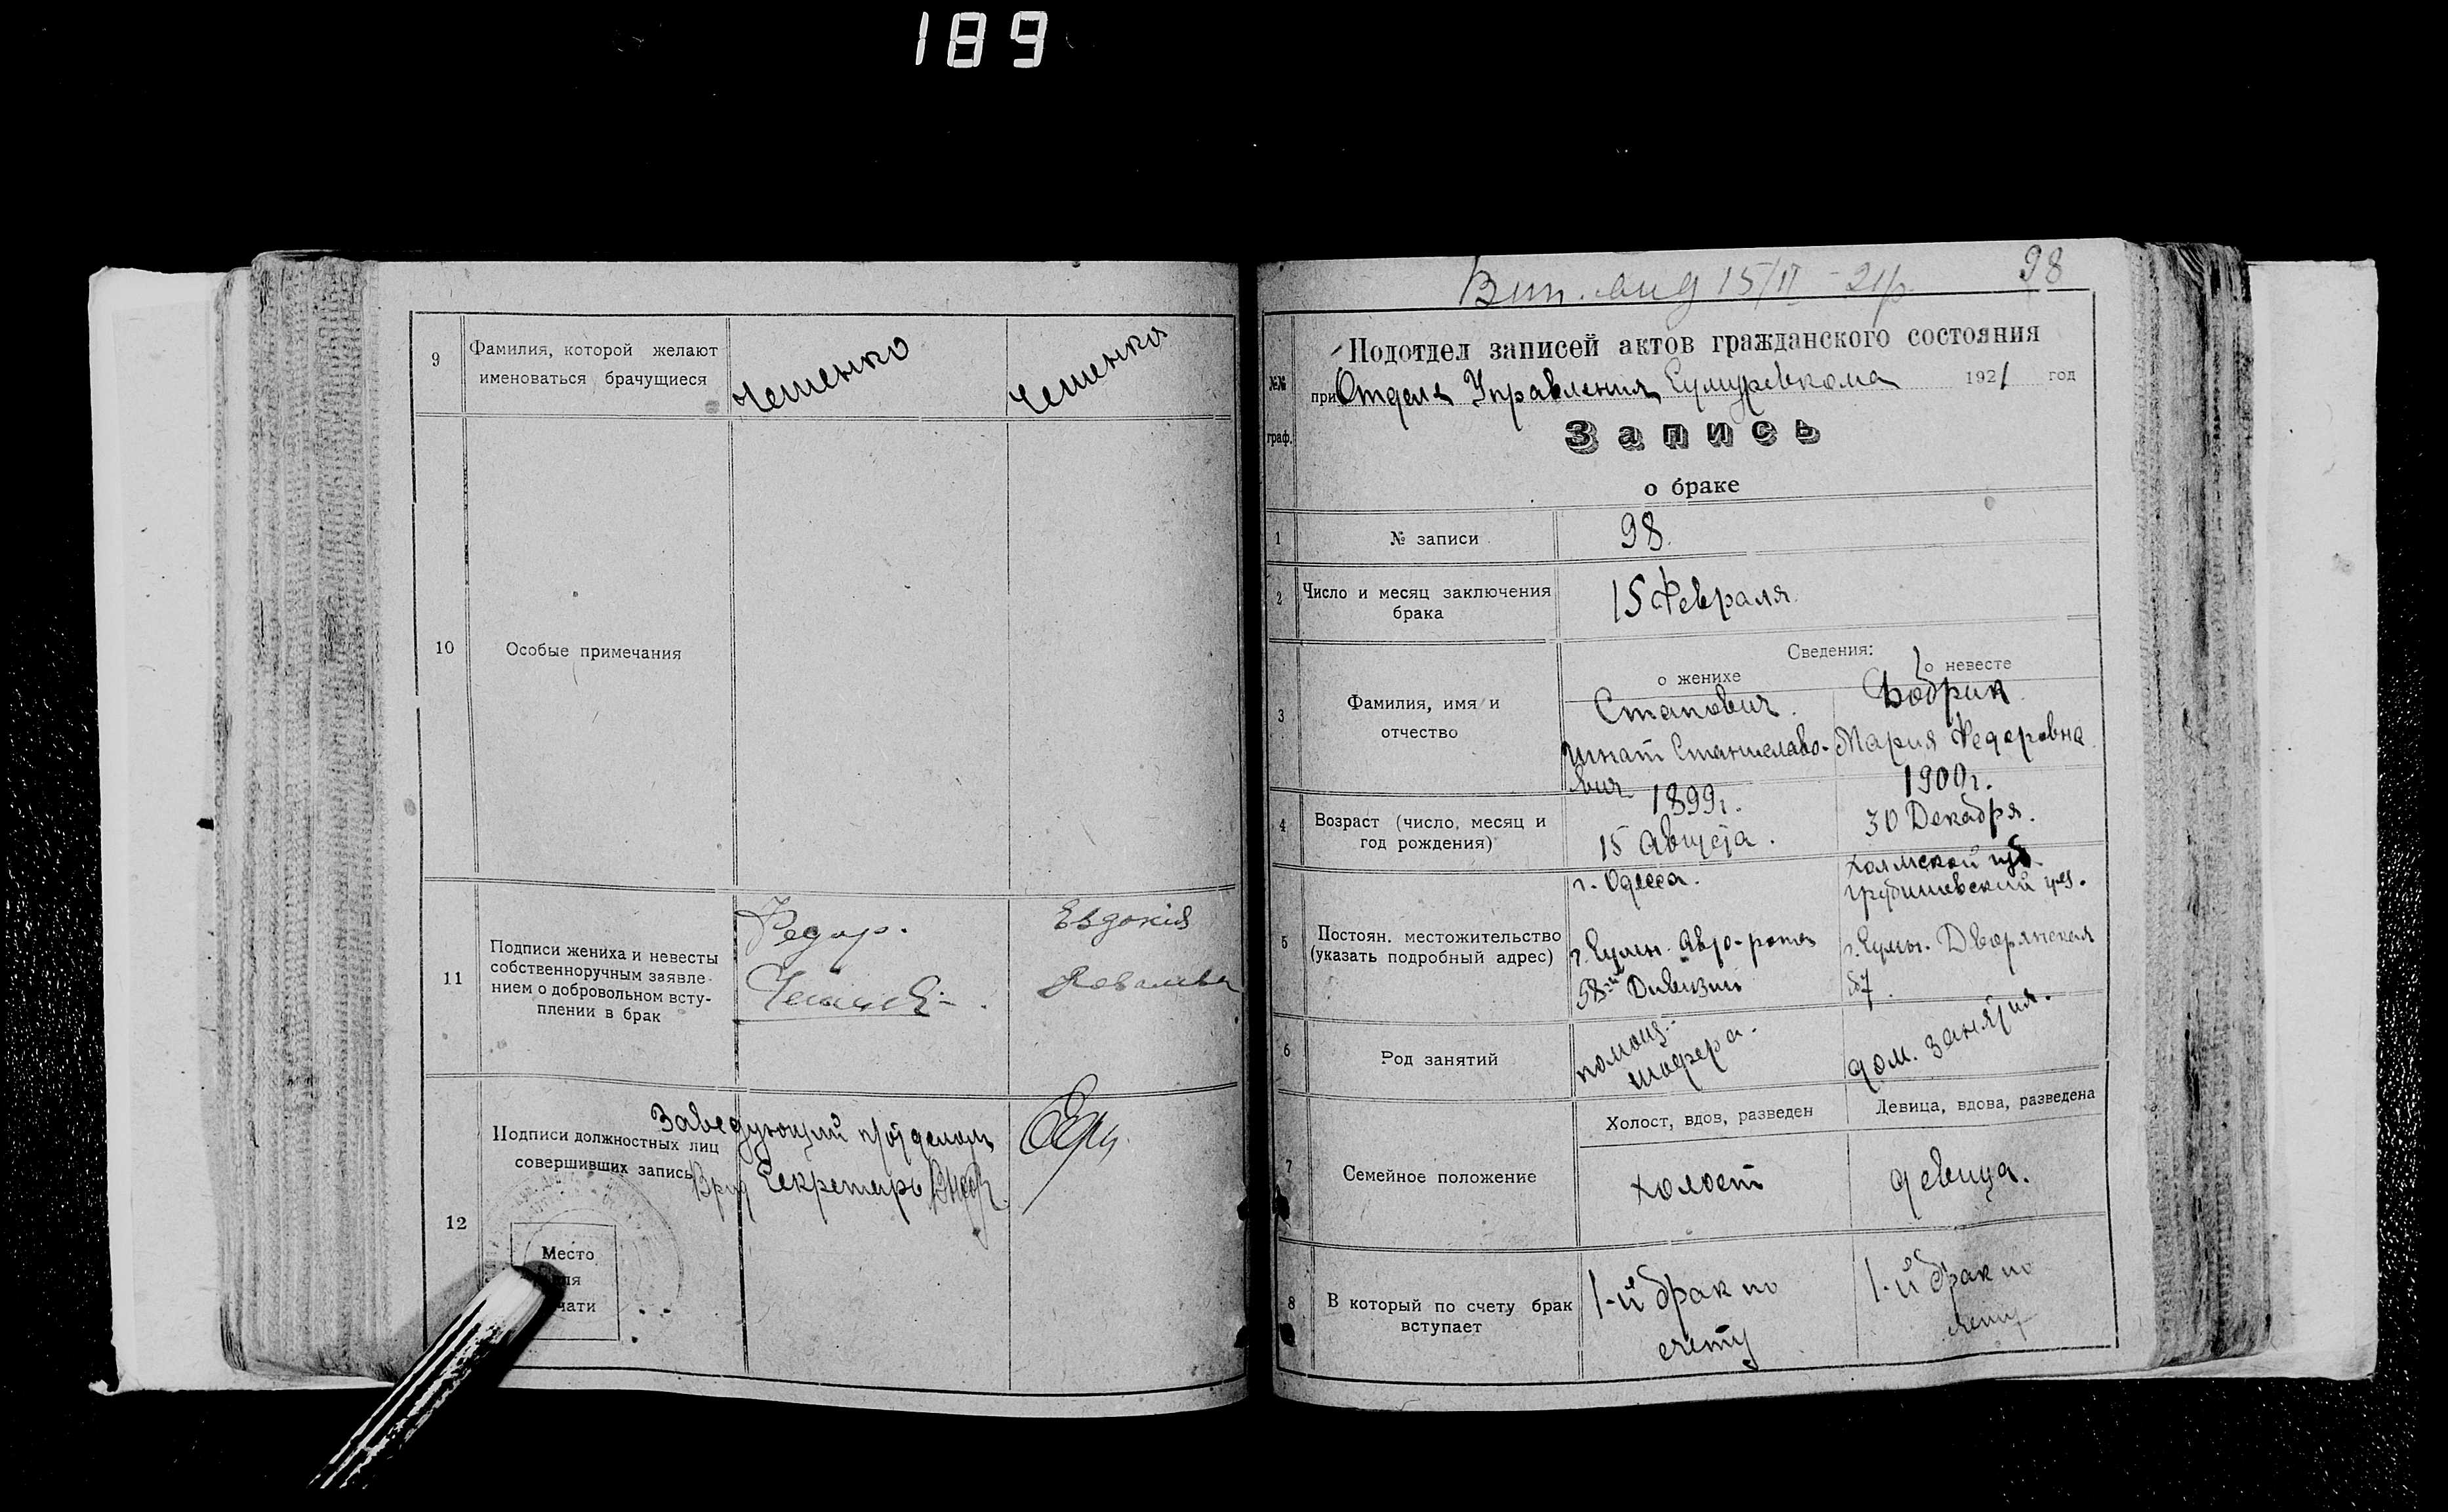 189
9
Фамилия, которой желают
именоваться брачущиеся
Чешенко
Чешенко
10
Особые примечания
11
Подписи жениха и невесты
собственноручным заявле-
нием о добровольном всту-
плении в брак
Федор.
Евдокія
12
Подписи должностных лиц
совершивших запись
Заведующий п/отделом
Врид Секретарь
Место
98
№№
граф.
Подотдел записей актов гражданского состояния
при Отделе Управления Сумуревкома 1921 год
Запись
о браке
1
№ записи
98.
2
Число и месяц заключения
брака
15 Февраля.
Сведения:
о женихе
о невесте
3
Фамилия, имя и
отчество
Станович.
Игнат Станиславо-
вич
Бобрик.
Мария Федоровна
4
Возраст (число, месяц и
год рождения)
1899г.
15 Августа.
1900г.
30 Декабря.
5
Постоян. местожительство
(указать подробный адрес)
г. Одесса.
г. Сумы. Авто-рота
58-й Дивизии
Холмской губ.
Грубишевский уез.
г. Сумы. Дворянская
6
Род занятий
помощ.
шофера.
дом. занятия.
7
Семейное положение
Холост, вдов, разведен
Девица, вдова, разведена
холост
девица.
8
В который по счету брак
вступает
1-й брак по
счету
1-й брак по
счету